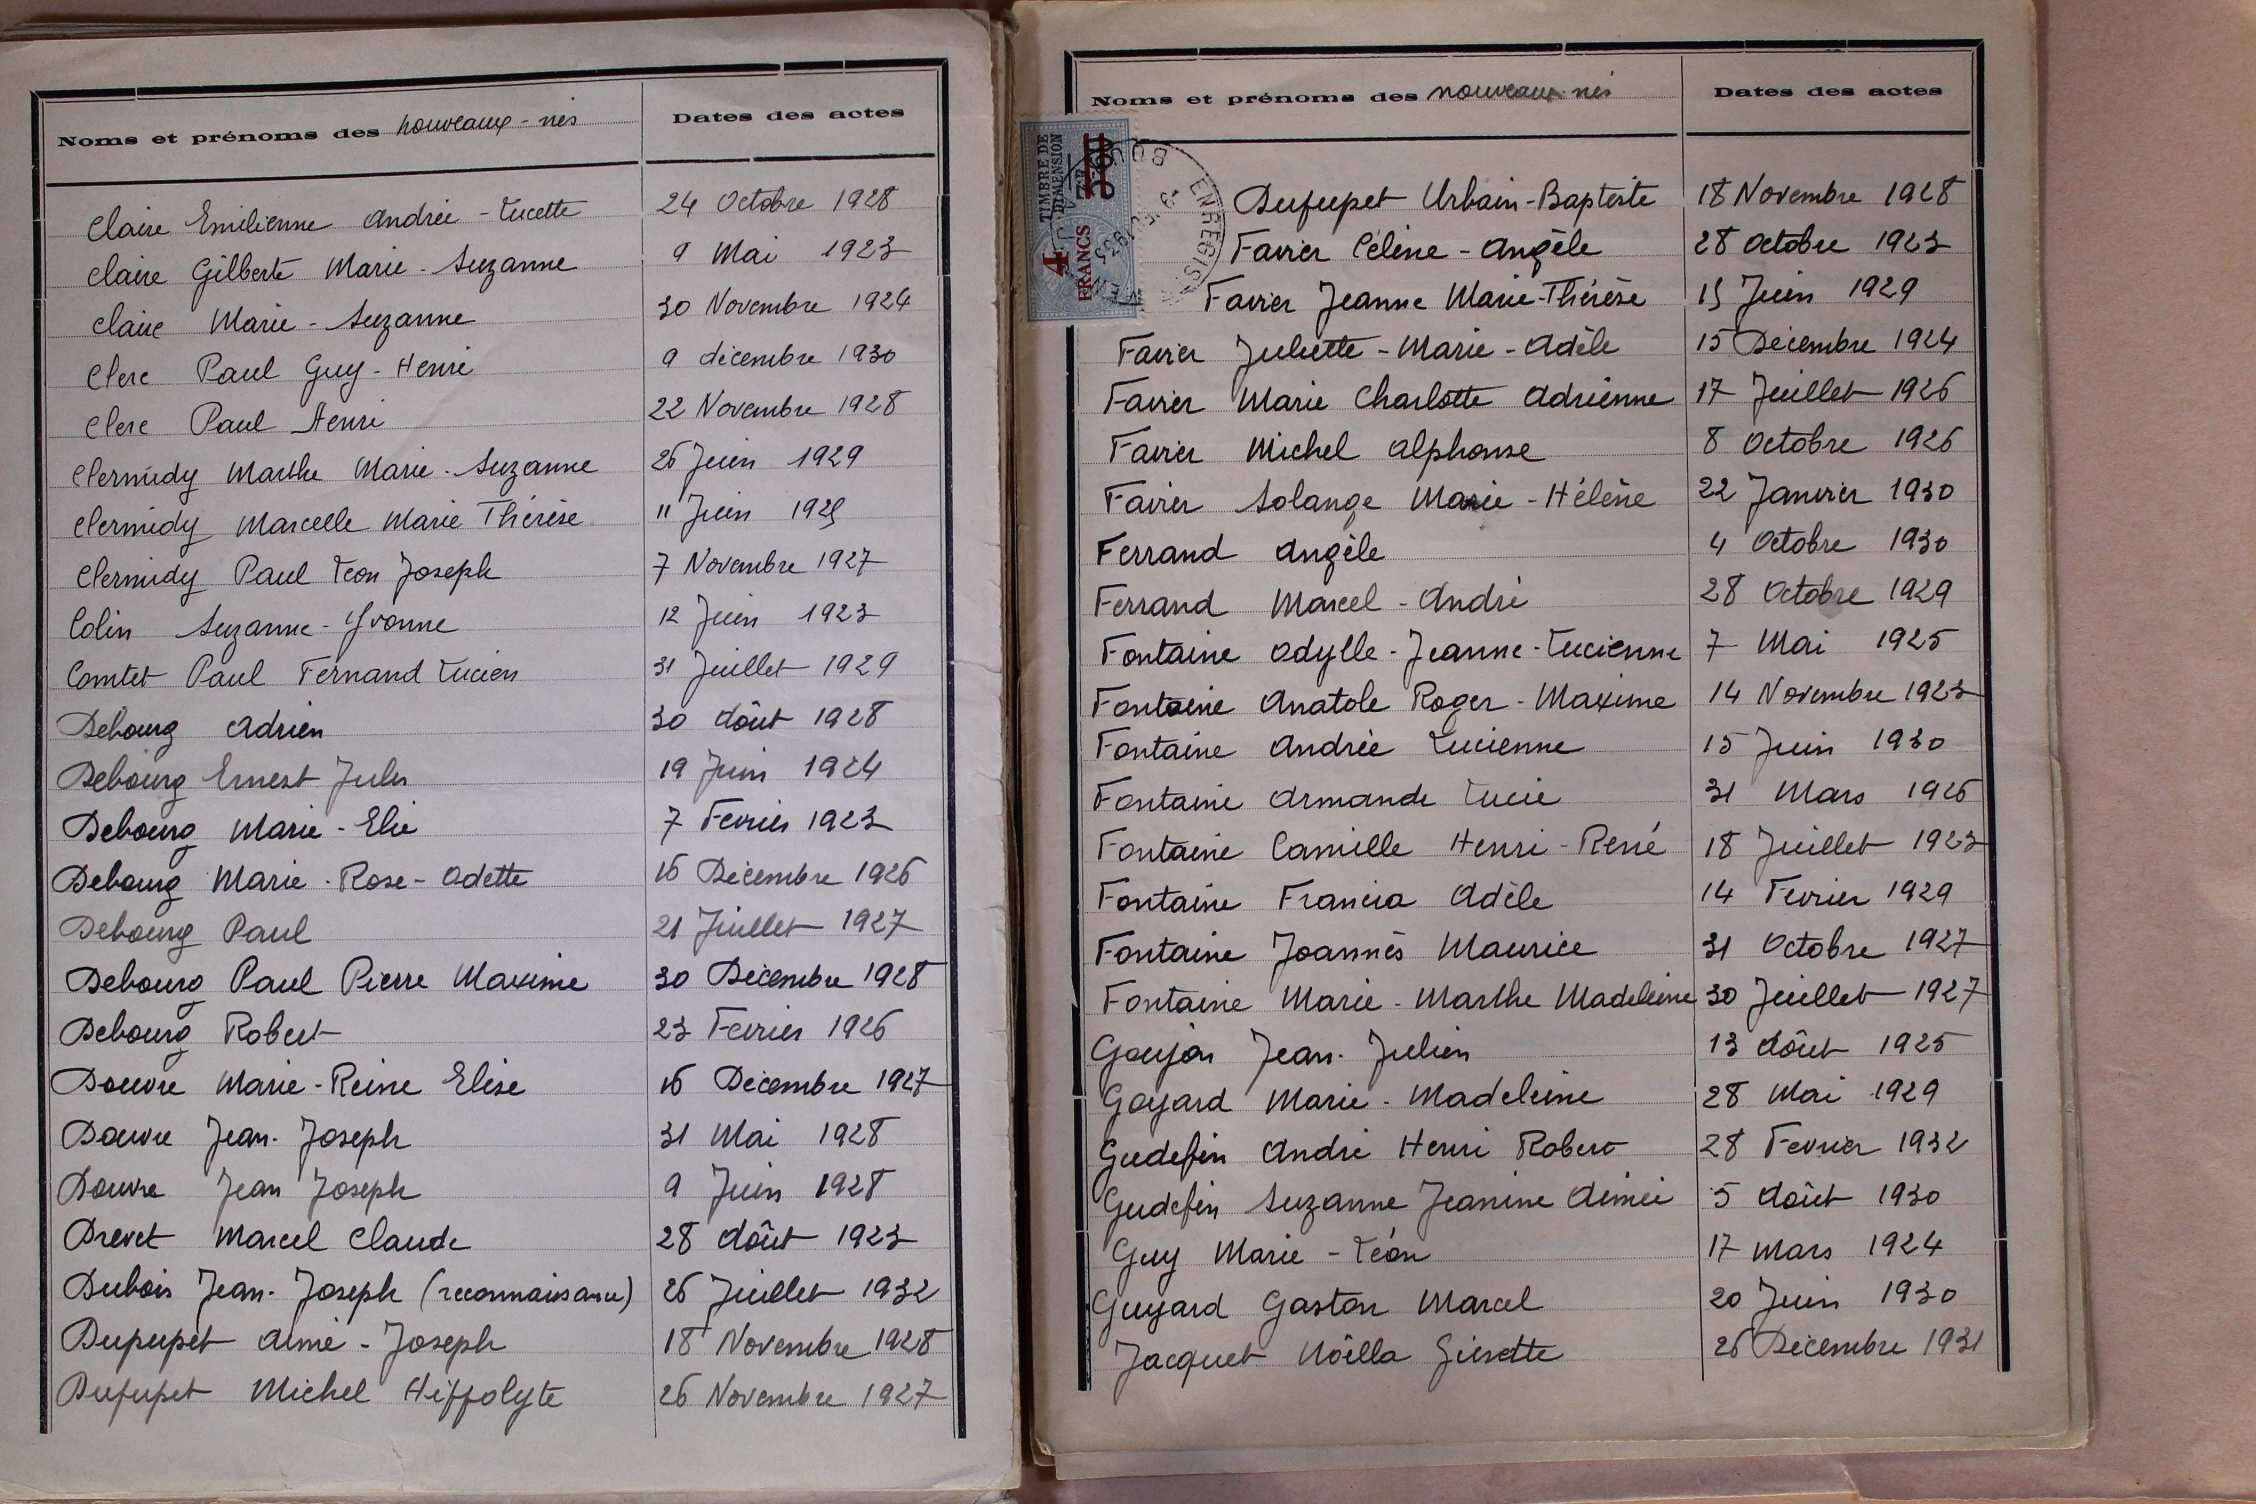 Noms et prénoms des nouveaux-nés Dates des actes
Claire Emilienne Andrée-Lucette 24 Octobre 1928
Claire Gilberte Marie-Suzanne 9 Mai 1923
Claire Marie-Suzanne 30 Novembre 1924
Clerc Paul Guy-Henri 9 décembre 1930
Clerc Paul Henri 22 Novembre 1928
Clermidy Marthe Marie-Suzanne 26 Juin 1929
Clermidy Marcelle Marie Thérèse 11 Juin 1925
Clermidy Paul Léon Joseph 7 Novembre 1927
Colin Suzanne-Yvonne 12 Juin 1923
Comtet Paul Fernand Lucien 31 Juillet 1929
Debourg Adrien 30 Août 1928
Debourg Ernest Jules 19 Juin 1924
Debourg Marie-Elie 7 Fevrier 1923
Debourg Marie-Rose-Odette 16 Décembre 1926
Debourg Paul 21 Juillet 1927
Debourg Paul Pierre Maxime 30 Décembre 1928
Debourg Robert 23 Fevrier 1926
Douvre Marie-Reine Elise 16 Décembre 1927
Douvre Jean-Joseph 31 Mai 1928
Douvre Jean Joseph 9 Juin 1928
Drevet Marcel Claude 28 Août 1923
Dubois Jean-Joseph (reconnaissance) 26 Juillet 1932
Dupupet Aimé-Joseph 18 Novembre 1928
Dupupet Michel Hippolyte 26 Novembre 1927
Noms et prénoms des nouveaux-nés Dates des actes
TIMBRE DE
DIMENSION
4 FRANCS
3F60
ENREGIS
Dupupet Urbain-Baptiste 18 Novembre 1928
Favier Céline-Angèle 28 Octobre 1923
Favier Jeanne Marie-Thérèse 15 Juin 1929
Favier Juliette-Marie-Adèle 15 Décembre 1924
Favier Marie Charlotte Adrienne 17 Juillet 1926
Favier Michel Alphonse 8 Octobre 1926
Favier Solange Marie-Hélène 22 Janvier 1930
Ferrand Angèle 4 Octobre 1930
Ferrand Marcel-André 28 Octobre 1929
Fontaine Odylle-Jeanne-Lucienne 7 Mai 1925
Fontaine Anatole Roger-Maxime 14 Novembre 1923
Fontaine Andrée Lucienne 15 Juin 1930
Fontaine Armande Lucie 31 Mars 1926
Fontaine Camille Henri-René 18 Juillet 1923
Fontaine Francia Adèle 14 Fevrier 1929
Fontaine Joannès Maurice 31 Octobre 1927
Fontaine Marie-Marthe Madeleine 30 Juillet 1927
Goujon Jean-Julien 13 Août 1925
Goyard Marie-Madeleine 28 Mai 1929
Gudefin André Henri Robert 28 Fevrier 1932
Gudefin Suzanne Jeanine Aimée 5 Août 1930
Guy Marie-Léon 17 Mars 1924
Guyard Gaston Marcel 20 Juin 1930
Jacquet Noëlla Ginette 26 Décembre 1931